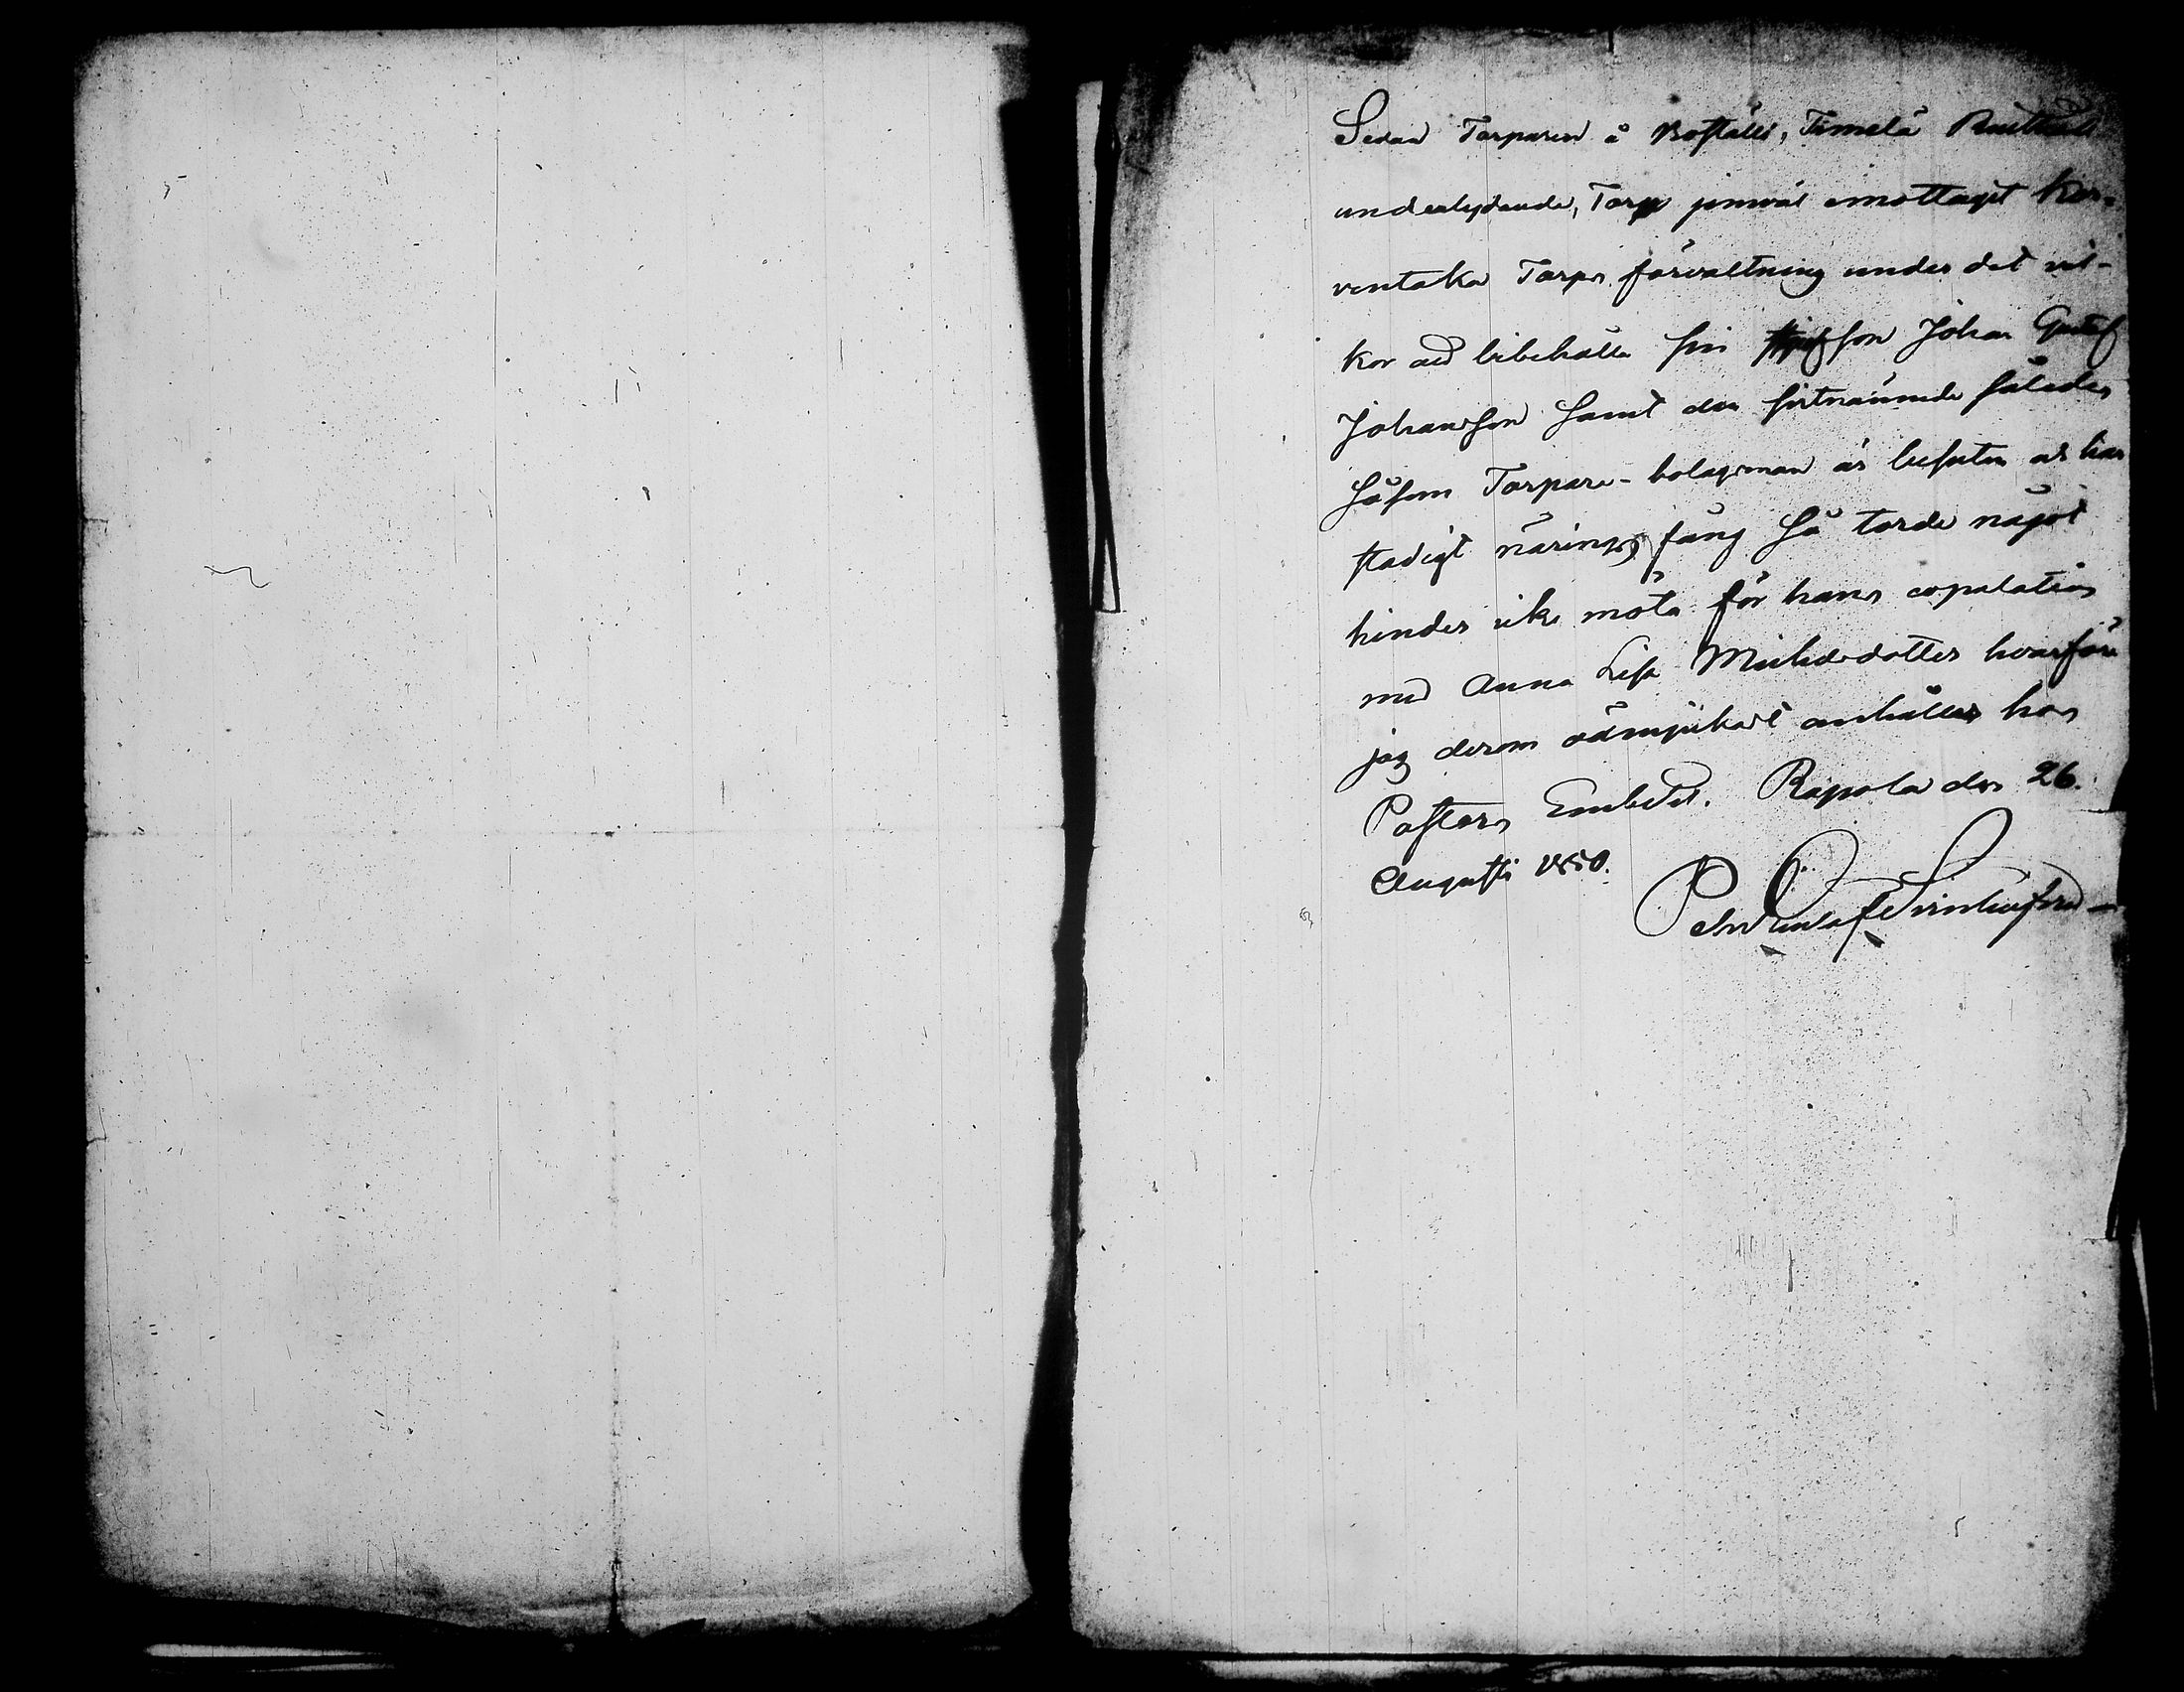 Sedan Torparen å Boställs, Timola
underlydande, Torp jemväl emottagit Kor-
ventaka Torps förvaltning under det vil-
kor att bibehålla sin Johan Gustaf
Johansson samt den sistnämnde således
såsom Torpare-bolagsman är besuten och har
stadigt närings fång så torde något
hinder icke möta för hans copulation
med Anna Lisa Michelsdotter hvarföre
jag derom ödmjukast anhåller hos
Pastors Embetet. Rapola den 26.
Augusti 1850.
Pehr Gustaf Svinhufvud